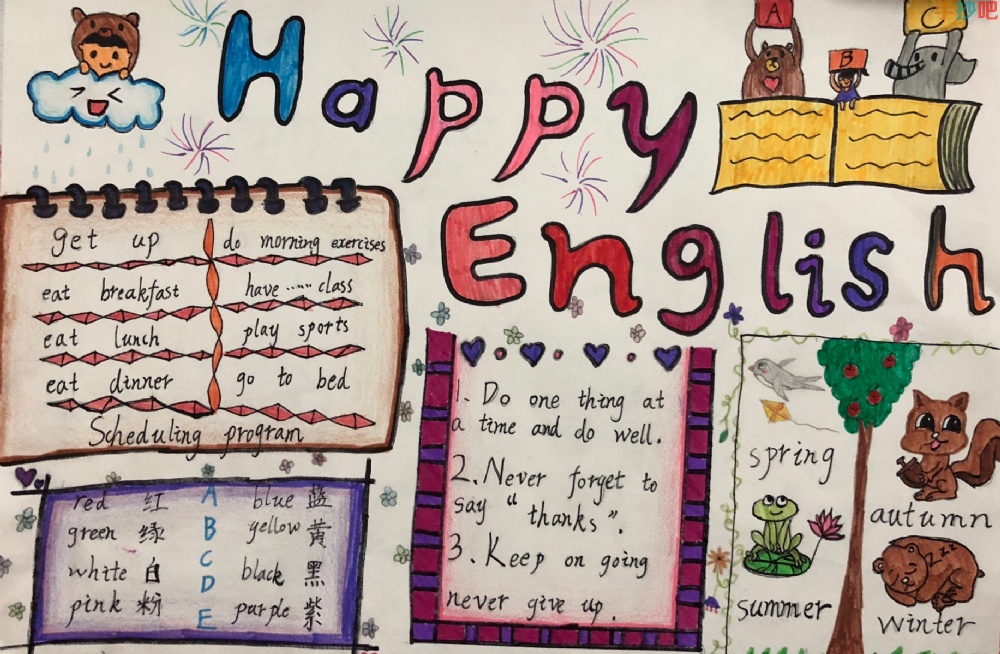 Happy
English
A
B
C
吧
get up
do morning exercises
eat breakfast
have ...... class
eat lunch
play sports
eat dinner
go to bed
Scheduling program
red 红
blue 蓝
green 绿
yellow 黄
white 白
black 黑
pink 粉
purple 紫
A
B
C
D
E
1. Do one thing at
a time and do well.
2. Never forget to
say “thanks”.
3. Keep on going
never give up.
spring
summer
autumn
zzz
winter